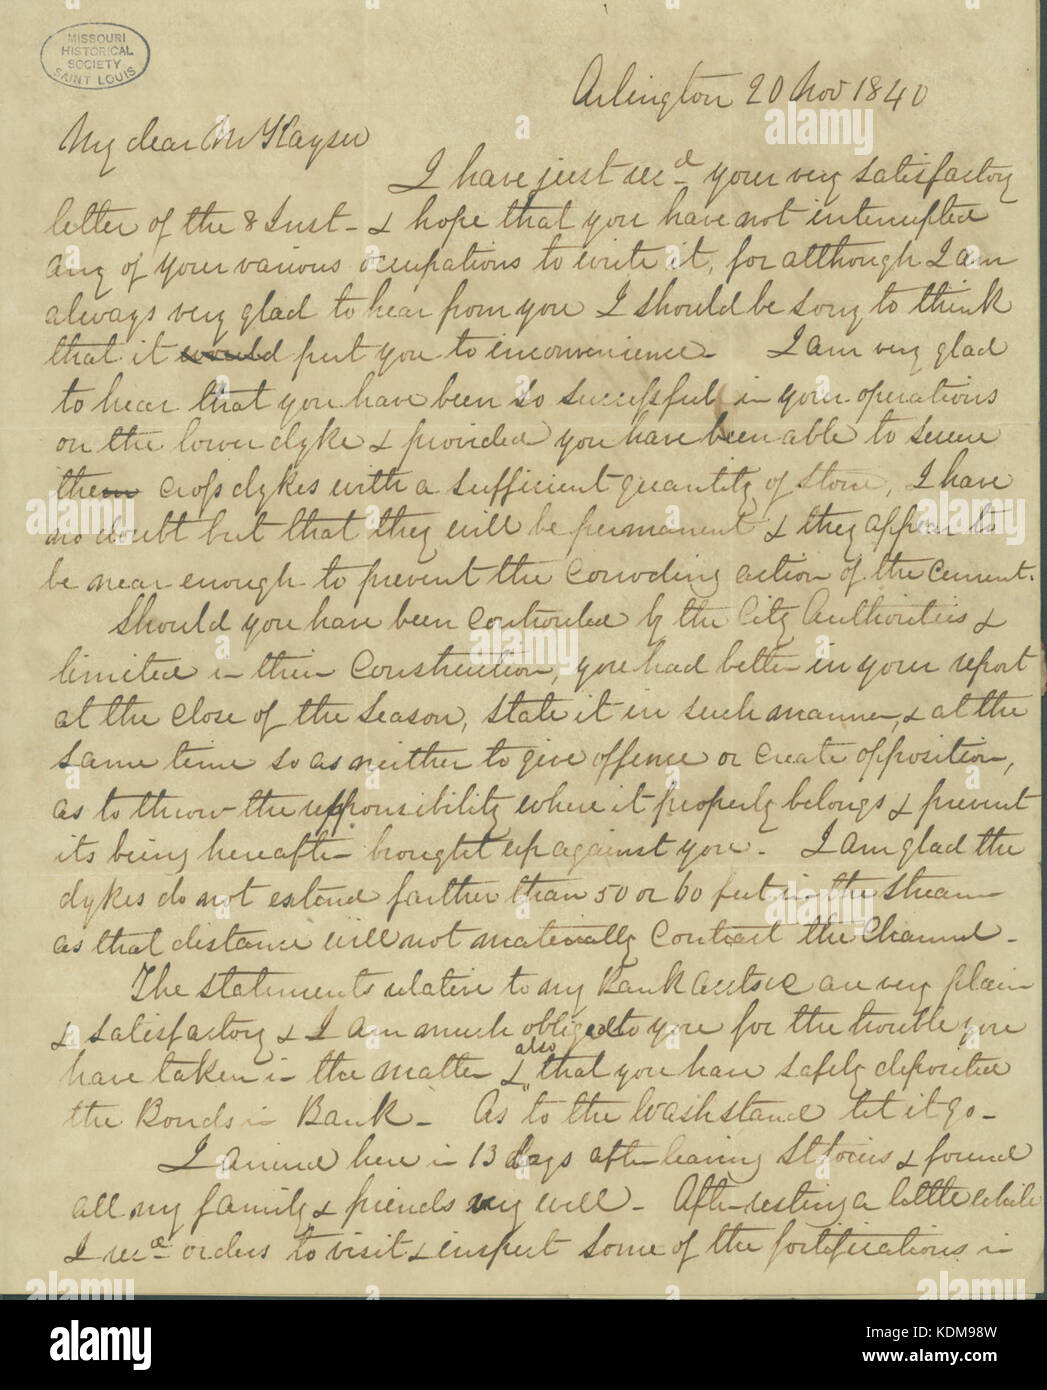 MISSOURI
HISTORICAL
SOCIETY
SAINT LOUIS
Arlington 20 Nov 1840
My dear Mr Kayser
I have just recd your very satisfactory
letter of the 8 Inst - & hope that you have not interrupted
any of your various occupations to write it, for although I am
always very glad to hear from you I should be sorry to think
that it would put you to inconvenience - I am very glad
to hear that you have been so successful in your operations
on the lower dyke & provided you have been able to secure
them cross dykes with a sufficient quantity of stone, I have
no doubt but that they will be permanent & they appear to
be near enough to prevent the corroding action of the current.
Should you have been controuled by the City Authorities &
limited in their Construction, you had better in your report
at the close of the season, state it in such manner, & at the
same time so as neither to give offence or create opposition,
as to throw the responsibility where it properly belongs & prevent
its being hereafter brought up against you - I am glad the
dykes do not extend farther than 50 or 60 feet in the stream
as that distance will not materially contract the Channel -
The statements relative to my Bank accts are very plain
& satisfactory & I am much obliged to you for the trouble you
have taken in the matter & also that you have safely deposited
the Bonds in Bank - As to the Washstand let it go -
I arrived here in 13 days after leaving St Louis & found
all my family & friends very well - After resting a little while
I recd orders to visit & inspect some of the fortifications in
alamy
Image ID: KDM98W
www.alamy.com